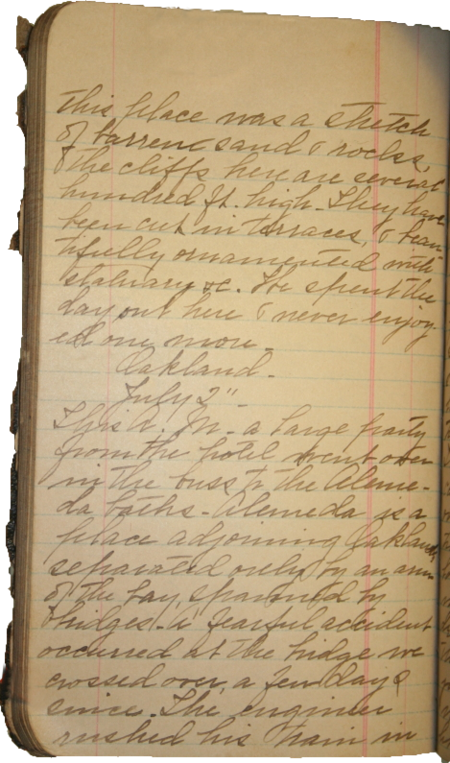 this place was a stretch
of barren sand & rocks,
& the cliffs here are several
hundred ft. high. They have
been cut in terraces, & beau-
tifully ornamented with
statuary &c. We spent the
day out here & never enjoy-
ed one more.
Oakland.
July 2"
This A. M. a large party
from the hotel went over
in the buss to the Aleme-
da baths. Alemeda is a
place adjoining Oakland,
separated only by an arm
of the bay, spanned by
bridges. A fearful accident
occurred at the bridge we
crossed over, a few days
since. The engineer
rushed his train in